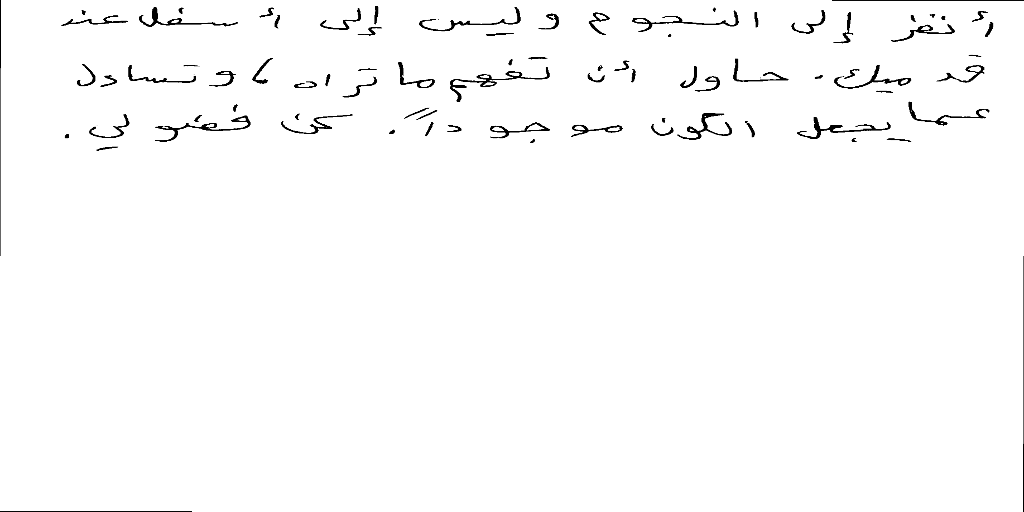 أنفز إلى النجوم وليس إلى أسفل عند
قدميك. حاول أن تفهم ما تراه، وتسادل
عما يجعل الكون موجوداً. كن فضولي.